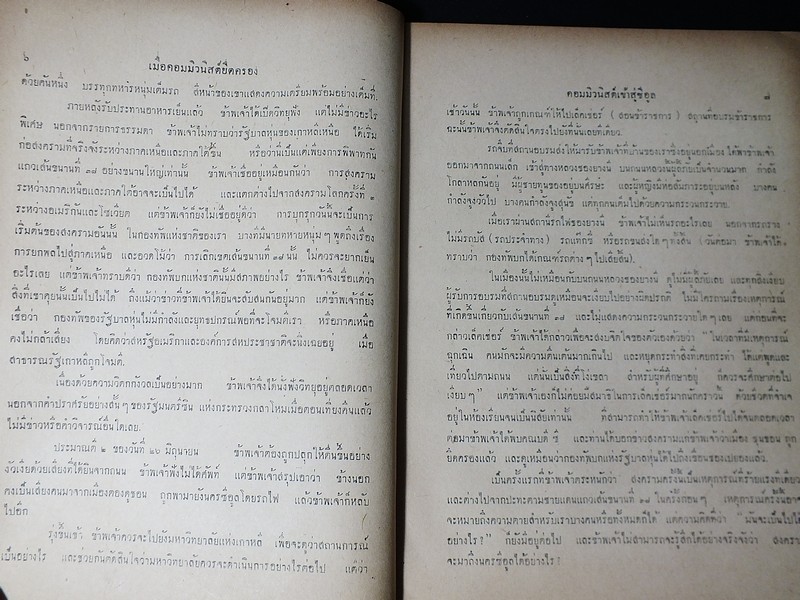 ๖
เมื่อคอมมิวนิสต์ยึดครอง
ด้วยคันหนึ่ง บรรทุกทหารหนุ่มเต็มรถ สีหน้าของเขาแสดงความเตรียมพร้อมอย่างเต็มที่.
ภายหลังรับประทานอาหารเย็นแล้ว ข้าพเจ้าได้เปิดวิทยุฟัง แต่ไม่มีข่าวอะไร
พิเศษ นอกจากรายการธรรมดา ข้าพเจ้าไม่ทราบว่ารัฐบาลหุ่นของเกาหลีเหนือ ได้เริ่ม
ก่อสงครามที่จริงจังระหว่างภาคเหนือและภาคใต้ขึ้น หรือว่านี่เป็นแต่เพียงการพิพาทกัน
แถวเส้นขนานที่ ๓๘ อย่างขนานใหญ่เท่านั้น ข้าพเจ้าเชื่ออยู่เหมือนกันว่า การสงคราม
ระหว่างภาคเหนือและภาคใต้อาจจะเป็นไปได้ และแตกต่างไปจากสงครามโลกครั้งที่ ๑
ระหว่างอเมริกันและโซเวียต แต่ข้าพเจ้าก็ยังไม่เชื่ออยู่ดีว่า การบุกรุกวันนี้จะเป็นการ
เริ่มต้นของสงครามอันนั้น ในกองทัพแห่งชาติของเรา บางทีมีนายทหารหนุ่มๆ พูดถึงเรื่อง
การยกพลไปสู่ภาคเหนือ และอวดโม้ว่า การเลิกเขตเส้นขนานที่ ๓๘ นั้น ไม่ควรจะยากเย็น
อะไรเลย แต่ข้าพเจ้าทราบดีว่า กองทัพบกแห่งชาตินั้นมีสภาพอย่างไร ข้าพเจ้าจึงเชื่อแต่ว่า
สิ่งที่เขาคุยนั้นเป็นไปไม่ได้ ถึงแม้ว่าข่าวที่ข้าพเจ้าได้ยินจะสับสนกันอยู่มาก แต่ข้าพเจ้าก็ยัง
เชื่อว่า กองทัพของรัฐบาลหุ่นไม่มีกำลังและยุทธปกรณ์พอที่จะโจมตีเรา หรือภาคเหนือ
คงไม่กล้าเสี่ยง โดยคิดว่าสหรัฐอเมริกาและองค์การสหประชาชาติจะนิ่งเฉยอยู่ เมื่อ
สาธารณรัฐเกาหลีถูกโจมตี.
เนื่องด้วยความวิตกกังวลเป็นอย่างมาก ข้าพเจ้าจึงได้นั่งฟังวิทยุอยู่ตลอดเวลา
นอกจากคำปราศรัยอย่างสั้นๆ ของรัฐมนตรีชิน แห่งกระทรวงกลาโหมเมื่อตอนเที่ยงคืนแล้ว
ไม่มีข่าวหรือคำวิจารณ์อื่นใดเลย.
ประมาณตี ๒ ของวันที่ ๒๖ มิถุนายน ข้าพเจ้าต้องถูกปลุกให้ตื่นขึ้นอย่าง
งัวเงียด้วยเสียงที่ได้ยินจากถนน ข้าพเจ้าฟังไม่ได้ศัพท์ แต่ข้าพเจ้าสรุปเอาว่า ข้างนอก
คงเป็นเสียงคนมาจากเมืองคองดูซอน ถูกพามายังนครซีอูลโดยรถไฟ แล้วข้าพเจ้าก็หลับ
ไปอีก
รุ่งขึ้นเช้า ข้าพเจ้าควรจะไปยังมหาวิทยาลัยแห่งเกาหลี เพื่อจะดูว่าสถานการณ์
เป็นอย่างไร และช่วยกันตัดสินใจว่ามหาวิทยาลัยควรจะดำเนินการอย่างไรต่อไป แต่ว่า
คอมมิวนิสต์เข้าสู่ซีอูล
๗
เช้าวันนั้น ข้าพเจ้าถูกเกณฑ์ให้ไปเล็คเช่อร์ (สอนข้าราชการ) สถานที่อบรมข้าราชการ
ฉะนั้นข้าพเจ้าจึงตัดสินใจตรงไปยังที่นั่นเลยทีเดียว.
รถจี๊บที่สถานอบรมส่งให้มารับข้าพเจ้าที่บ้านของเราซึ่งอยู่นอกเมือง ได้พาข้าพเจ้า
ออกมาจากถนนเล็ก เข้าสู่ทางหลวงของยางนี บนถนนหลวงมีผู้ลี้ภัยเป็นจำนวนมาก กำลัง
โกลาหลกันอยู่ มีผู้ชายทูนของอยู่บนศีรษะ และผู้หญิงมีห่ออันภาระอยู่บนหลัง บางคน
กำลังจูงวัวไป บางคนกำลังจูงสุนัข แต่ทุกคนเต็มไปด้วยความกระวนกระวาย.
เมื่อเราผ่านสถานีรถไฟของยางนี ข้าพเจ้าไม่เห็นรถอะไรเลย นอกจากรถราง
ไม่มีรถบัส (รถประจำทาง) รถแท๊กซี่ หรือรถขนส่งใดๆ ทั้งสิ้น (วันต่อมา ข้าพเจ้าได้
ทราบว่า กองทัพบกได้เกณฑ์รถต่างๆ ไปเสียสิ้น).
ในเมืองนั้นไม่เหมือนกับบนถนนหลวงของยางนี ดูไม่มีผู้ลี้ภัยเลย และดูกลิ่งเงียบ
ผู้รับการอบรมที่สถานอบรมดูเหมือนจะเงียบไปอย่างผิดปรกติ ไม่มีใครถามเรื่องเหตุการณ์
ที่เกิดขึ้นเกี่ยวกับเส้นขนานที่ ๓๘ และไม่แสดงความกระวนกระวายใดๆ เลย แต่ก่อนที่จะ
กล่าวเล็คเช่อร์ ข้าพเจ้าได้กล่าวเพื่อจะสงบจิตใจของตัวเองด้วยว่า "ในเวลาที่มีเหตุการณ์
ฉุกเฉิน คนมักจะมีความตื่นเต้นมากเกินไป และหยุดกระทำสิ่งที่เคยกระทำ ได้แต่พูดและ
เที่ยวไปตามถนน แต่นั่นเป็นสิ่งที่โง่เขลา สำหรับผู้ที่ศึกษาอยู่ ก็ควรจะศึกษาต่อไป
เงียบๆ" แต่ข้าพเจ้าเองก็ไม่ค่อยมีสมาธิในการเล็คเช่อร์มากนักคราวนั้น ด้วยชีวิตที่จำเจ
อยู่ในห้องเรียนจนเป็นนิสัยเท่านั้น ที่สามารถทำให้ข้าพเจ้าเล็คเช่อร์ไปได้จนตลอดเวลา
ต่อมาข้าพเจ้าได้พบคณบดี ชี และท่านได้บอกข่าวสงครามแก่ข้าพเจ้าว่าเมือง ชุนชอน ถูก
ยึดครองแล้ว และดูเหมือนว่ากองทัพบกแห่งรัฐบาลหุ่นได้ไปถึงเขื่อนของเปยองแล้ว.
เป็นครั้งแรกที่ข้าพเจ้าตระหนักว่า สงครามครั้งนี้เป็นเหตุการณ์ที่ร้ายแรงทีเดียว
และต่างไปจากปะทะตามชายแดนแถวเส้นขนานที่ ๓๘ ในครั้งก่อนๆ เหตุการณ์ครั้งนี้อาจ
จะหมายถึงความตายสำหรับเราบางคนหรือทั้งหมดก็ได้ แต่ความคิดที่ว่า "มันจะเป็นไปได้
อย่างไร?" ก็ยังมีอยู่ต่อไป และข้าพเจ้าไม่สามารถจะรู้สึกได้อย่างจริงจังว่า สงคราม
จะมาถึงนครซีอูลได้อย่างไร?